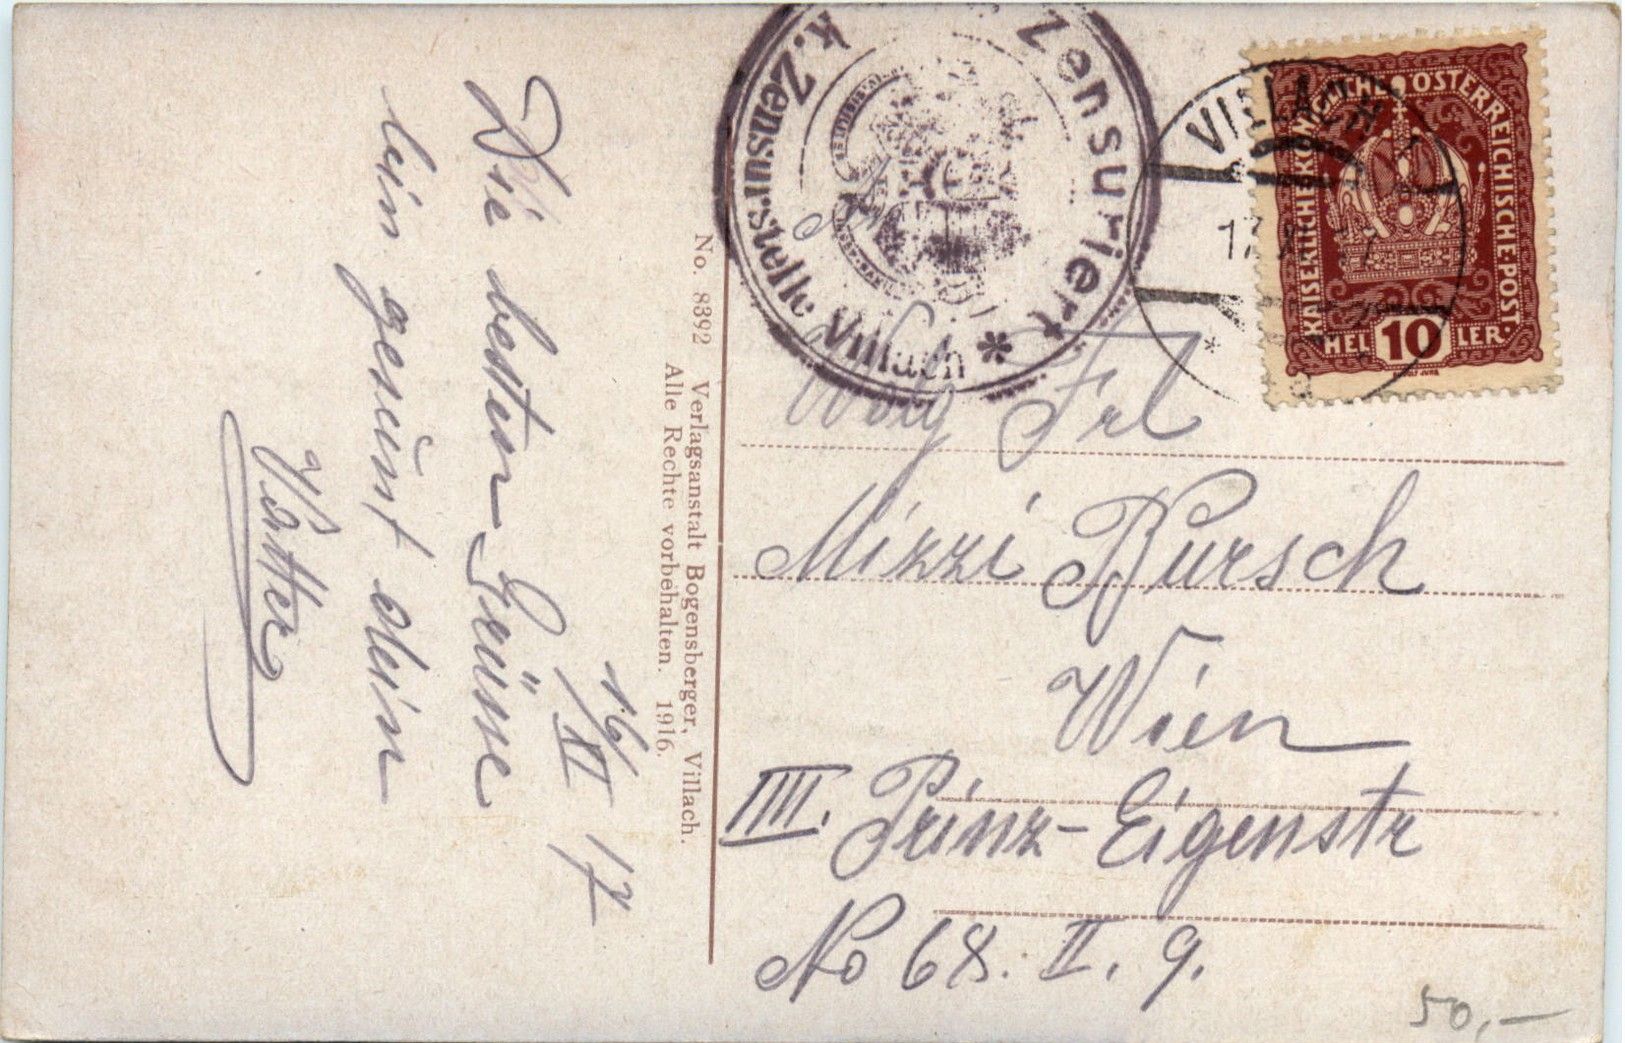 16/XI 17
Die besten Grüsse
bin gesunt dein
Vatter
No. 8392 Verlagsanstalt Bogensberger, Villach.
Alle Rechte vorbehalten. 1916.
Zensuriert
K. Zensurstelle Villach *
VILLACH
KAISERLICHE KÖNIGLICHE ÖSTERREICHISCHE POST.
HELLER
10
Frl
Mizzi Bursch
Wien
III. Prinz-Eigenstr
No 68. II. 9.
50,-